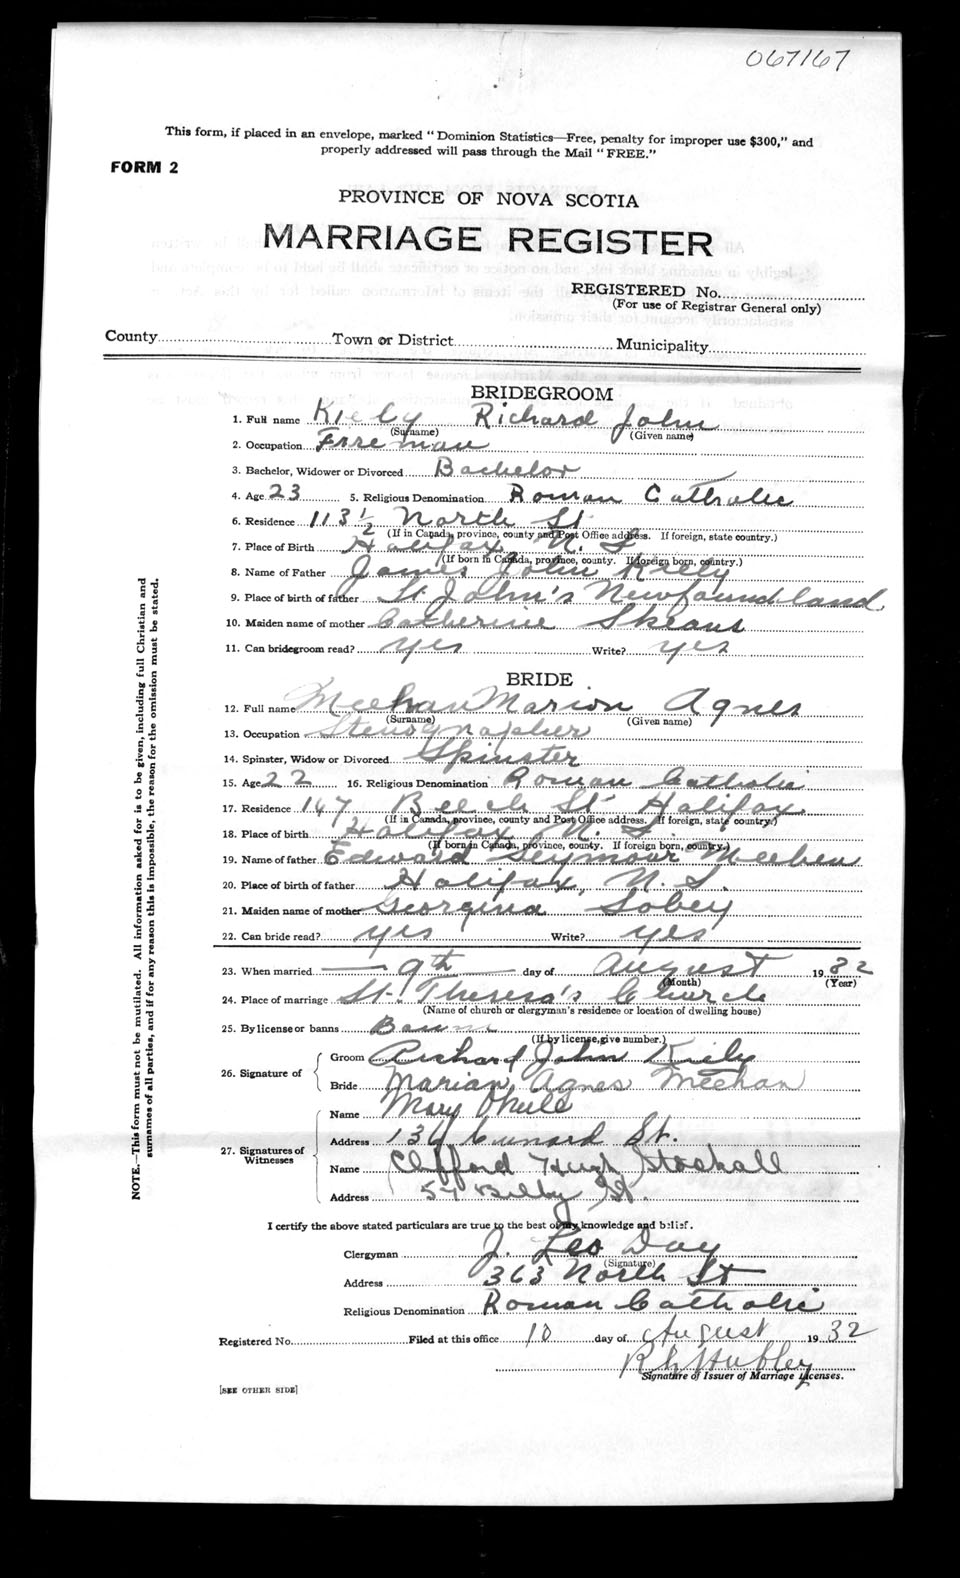 067167
This form, if placed in an envelope, marked "Dominion Statistics—Free, penalty for improper use $300," and
properly addressed will pass through the Mail "FREE."
FORM 2
PROVINCE OF NOVA SCOTIA
MARRIAGE REGISTER
REGISTERED No.
(For use of Registrar General only)
County Town or District Municipality
BRIDEGROOM
1. Full name Kiely Richard John
(Surname) (Given name)
2. Occupation Fireman
3. Bachelor, Widower or Divorced Bachelor
4. Age 23 5. Religious Denomination Roman Catholic
6. Residence 113 1/2 North St
(If in Canada, province, county and Post Office address. If foreign, state country.)
7. Place of Birth Halifax N. S
(If born in Canada, province, county. If foreign born, country.)
8. Name of Father James John Kiely
9. Place of birth of father St. John's Newfoundland
10. Maiden name of mother Catherine
11. Can bridegroom read? yes Write? yes
BRIDE
12. Full name Meehan Marion Agnes
(Surname) (Given name)
13. Occupation Stenographer
14. Spinster, Widow or Divorced Spinster
15. Age 22 16. Religious Denomination Roman Catholic
17. Residence 147 Beech St Halifax
(If in Canada, province, county and Post Office address. If foreign, state country.)
18. Place of birth Halifax N. S.
(If born in Canada, province, county. If foreign born, country.)
19. Name of father Edward Seymour Meehan
20. Place of birth of father Halifax, N. S.
21. Maiden name of mother Georgina Sobey
22. Can bride read? yes Write? yes
23. When married 9th day of August 1932
(Month) (Year)
24. Place of marriage St. Theresa's Church
(Name of church or clergyman's residence or location of dwelling house)
25. By license or banns Banns
(If by license, give number.)
26. Signature of
Groom Richard John Kiely
Bride Marian Agnes Meehan
27. Signatures of Witnesses
Name Mary
Address 136 Cunard St.
Name Clifford Hugh Stockall
Address 57 Bilby St.
I certify the above stated particulars are true to the best of my knowledge and belief.
Clergyman J. Leo Day
(Signature)
Address 363 North St
Religious Denomination Roman Catholic
Registered No. Filed at this office 10 day of August 1932
Hubley
Signature of Issuer of Marriage Licenses.
[SEE OTHER SIDE]
NOTE.—This form must not be mutilated. All information asked for is to be given, including full Christian and
surnames of all parties, and if for any reason this is impossible, the reason for the omission must be stated.